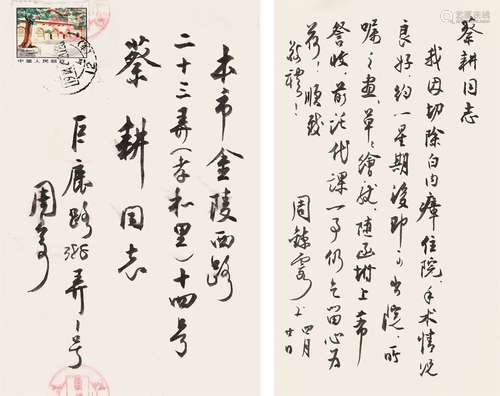 中国人民邮政
本市金陵西路
二十三弄(孝和里)十四号
蔡耕同志
巨鹿路383弄1号
周
蔡耕同志
我因切除白内瘴住院,手术情况
良好,约一星期后即可出院,所
嘱之画,草草绘成,随函附上希
詧收,前托代课一事仍乞留心为
荷,顺致
敬礼!
周鍊霞上 四月
廿日